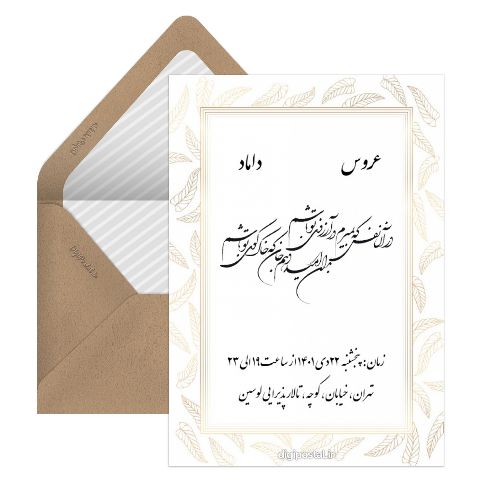 عروس داماد
در آن نفس که بمیرم در آرزوی تو باشم
بدان امید دهم جان که خاک کوی تو باشم
زمان: پنجشنبه ۲۲ دی ۱۴۰۱ از ساعت ۱۹ الی ۲۳
تهران، خیابان، کوچه، تالار پذیرایی لوسین
digipostal.ir
DigiPostal.ir
DigiPostal.ir